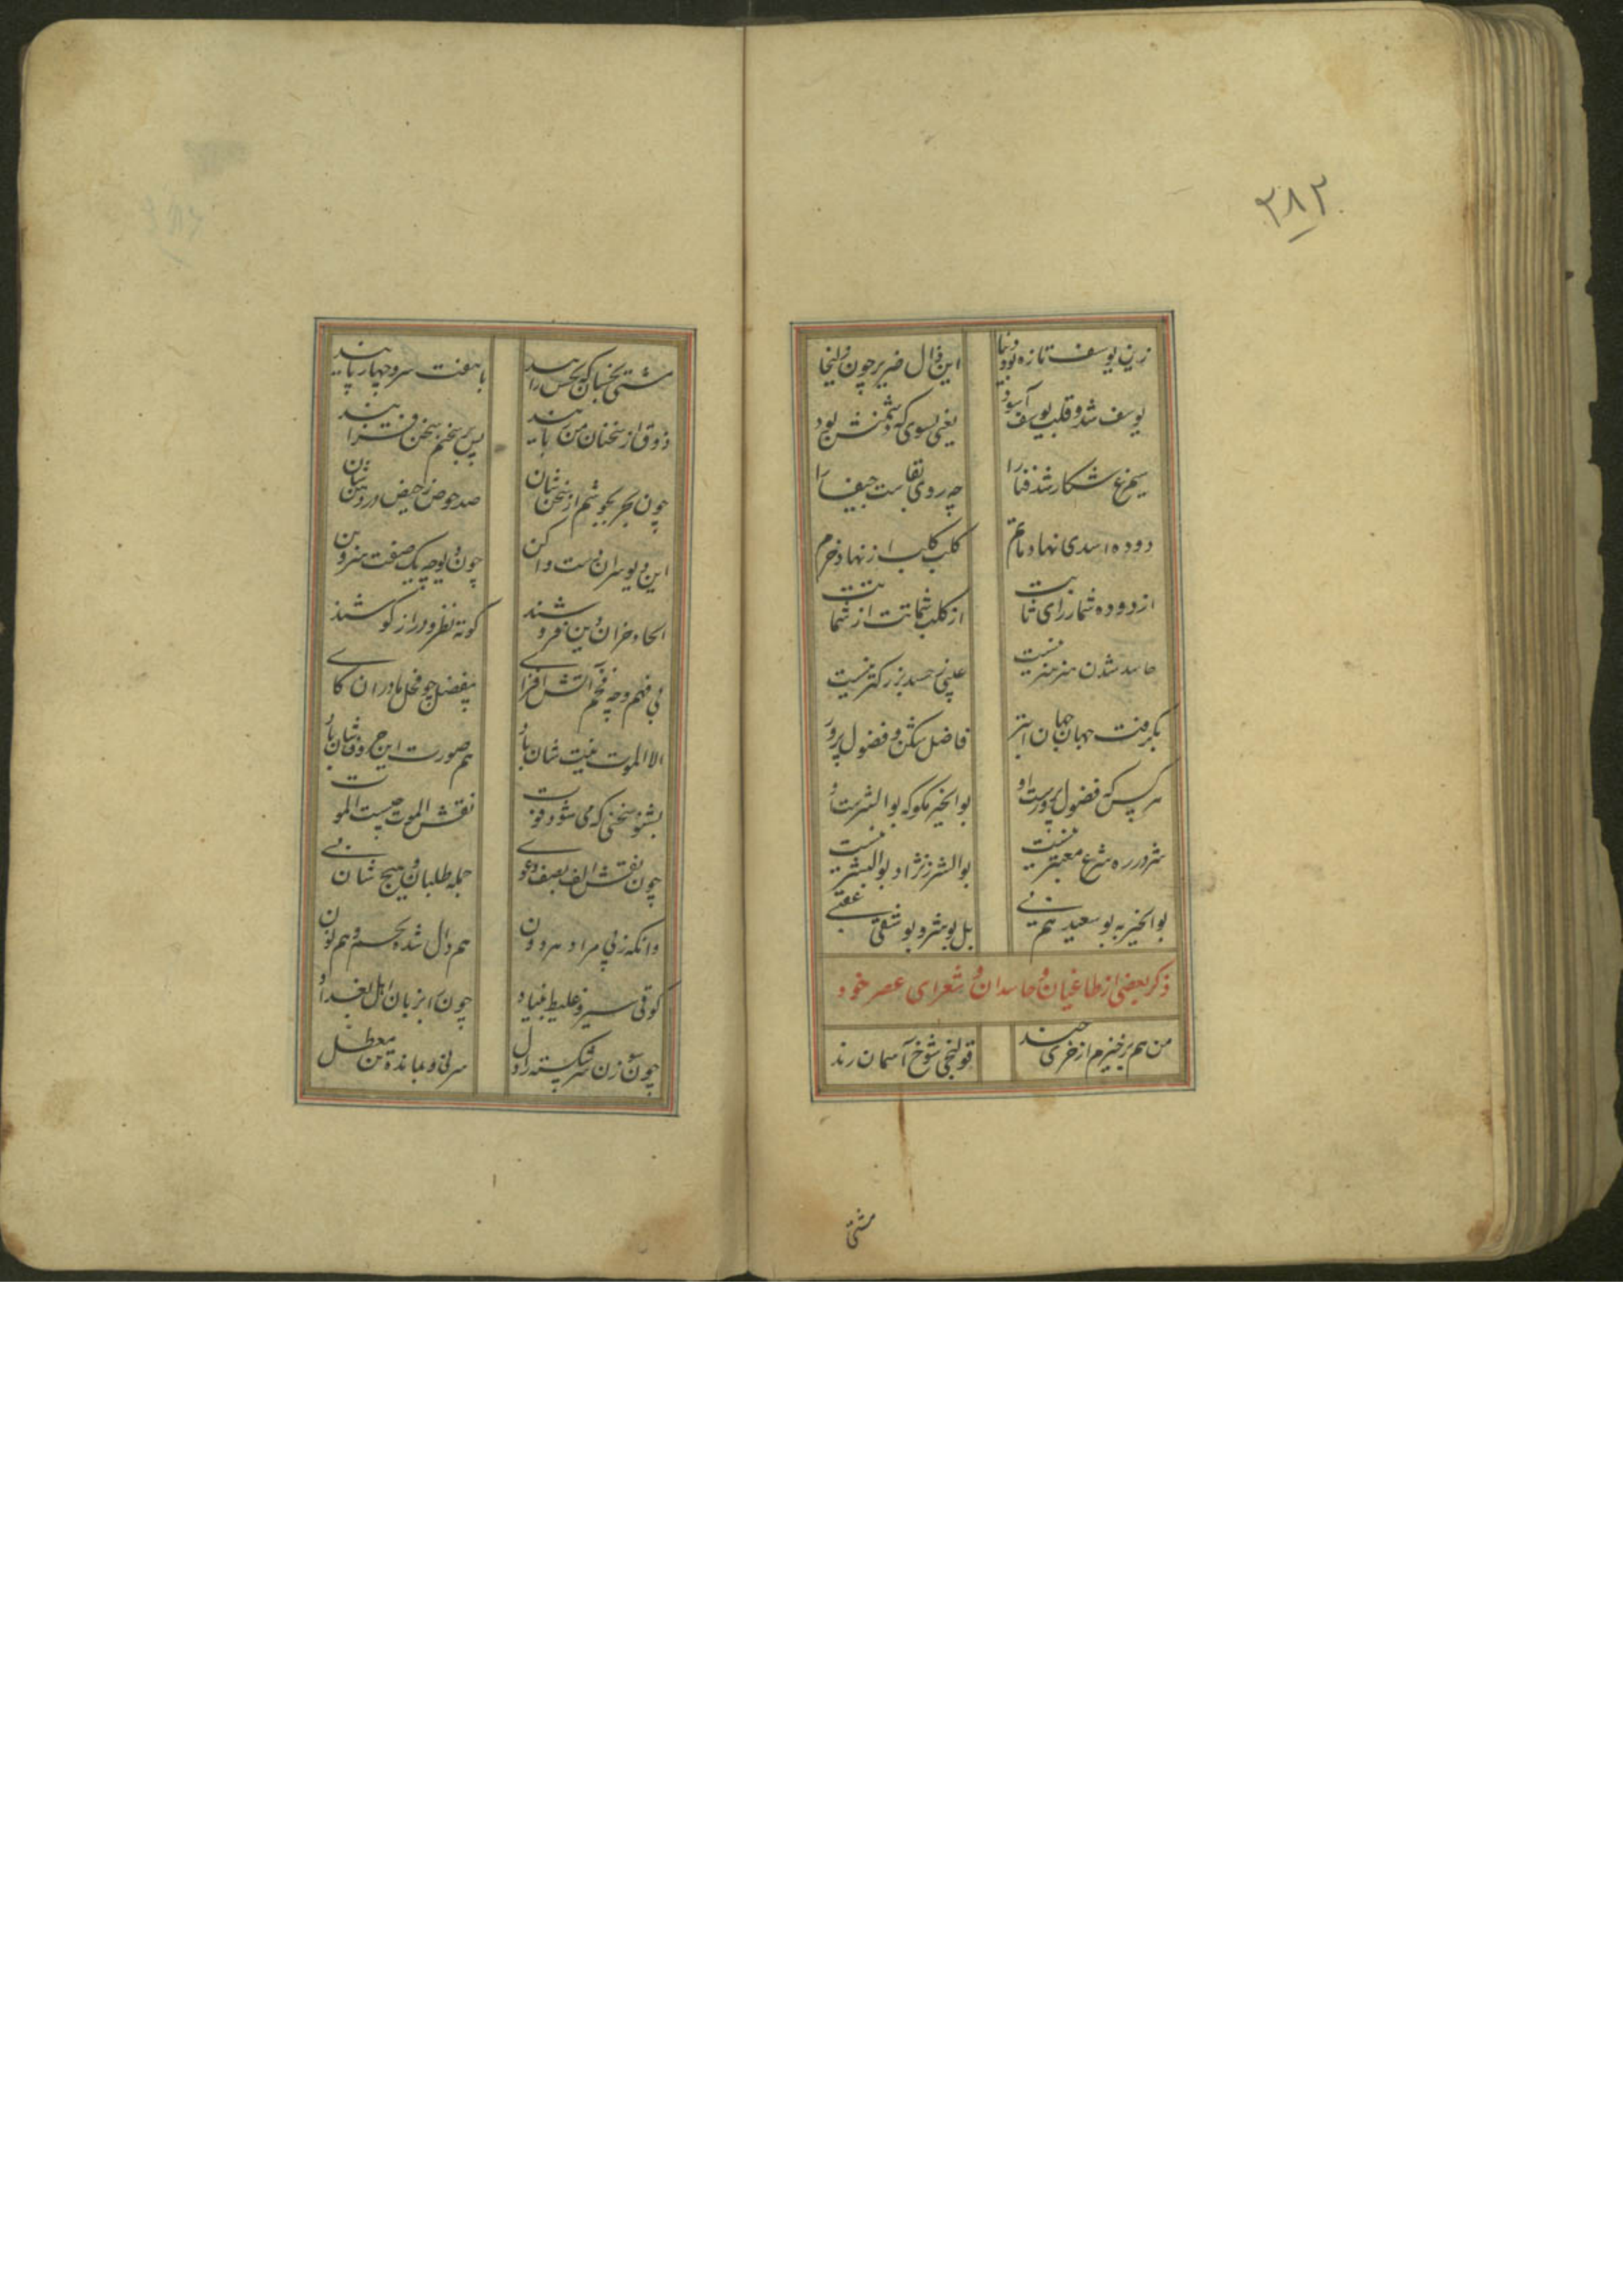 ۳۸۲
زین یوسف تازه بود دنیا
این زال ضریر چون زلیخا
یوسف شد و قلب یوسف
یعنی بسوی که دشمنش بود
سیمرغ شکار شد فنا را
چه روی بقاست جیفه را
دوده اسدی نهاد ماتم
کلب کلب از نهاد خرم
از دوده شمار رای ثابت
از کلب شماتت از شماتت
حاسد شدن هنر هنر نیست
عیبی ز حسد بزرگتر نیست
بگرفت جهان جهان ابتر
فاضل شکن و فضول پرور
هر کس که فضول پرورست او
بوالخیر مگو که بوالشرست او
شر در ره شرع معتبر نیست
بوالشر ز نژاد بوالبشر نیست
بوالخیر به بوسعید هم نی
بل بوشر و بوشقی
ذکر بعضی از طاغیان و حاسدان و شعرای عصر خود
من هم برخیزم از خری چند
قولنجی شوخ آسمان رند
مشتی
مشتی خسان که نحس رایند
با هفت سر و چهار پایند
ذوق از سخنان من ربایند
پس بر سخنم سخن فزایند
چون بحر بجوشم از سخن شان
صد حوض ز حیض در دهن شان
این دیوسران ست واکن
چون دیوچه یک صفت
الحاد خران دین فروشند
کوته نظر و دراز گوشند
بی فهم و چه فحم آتش افزای
مفضل چو فحل مادران کای
الا الموت نیت شان باد
هم صورت این حروف شان باد
بشنو سخنی که می شود فوت
نقش الموت چیست الموت
چون نقش الف بصف دعوی
جمله طلبان و هیچ شان نی
وانکه ز پی مراد هر دون
هم دال شده بجسم و هم نون
کوفی سیر و غلیظ بنیاد
چون آبر زبان اهل بغداد
چون سوزن سر شکسته ز اول
سر نی و بمانده تن معطل